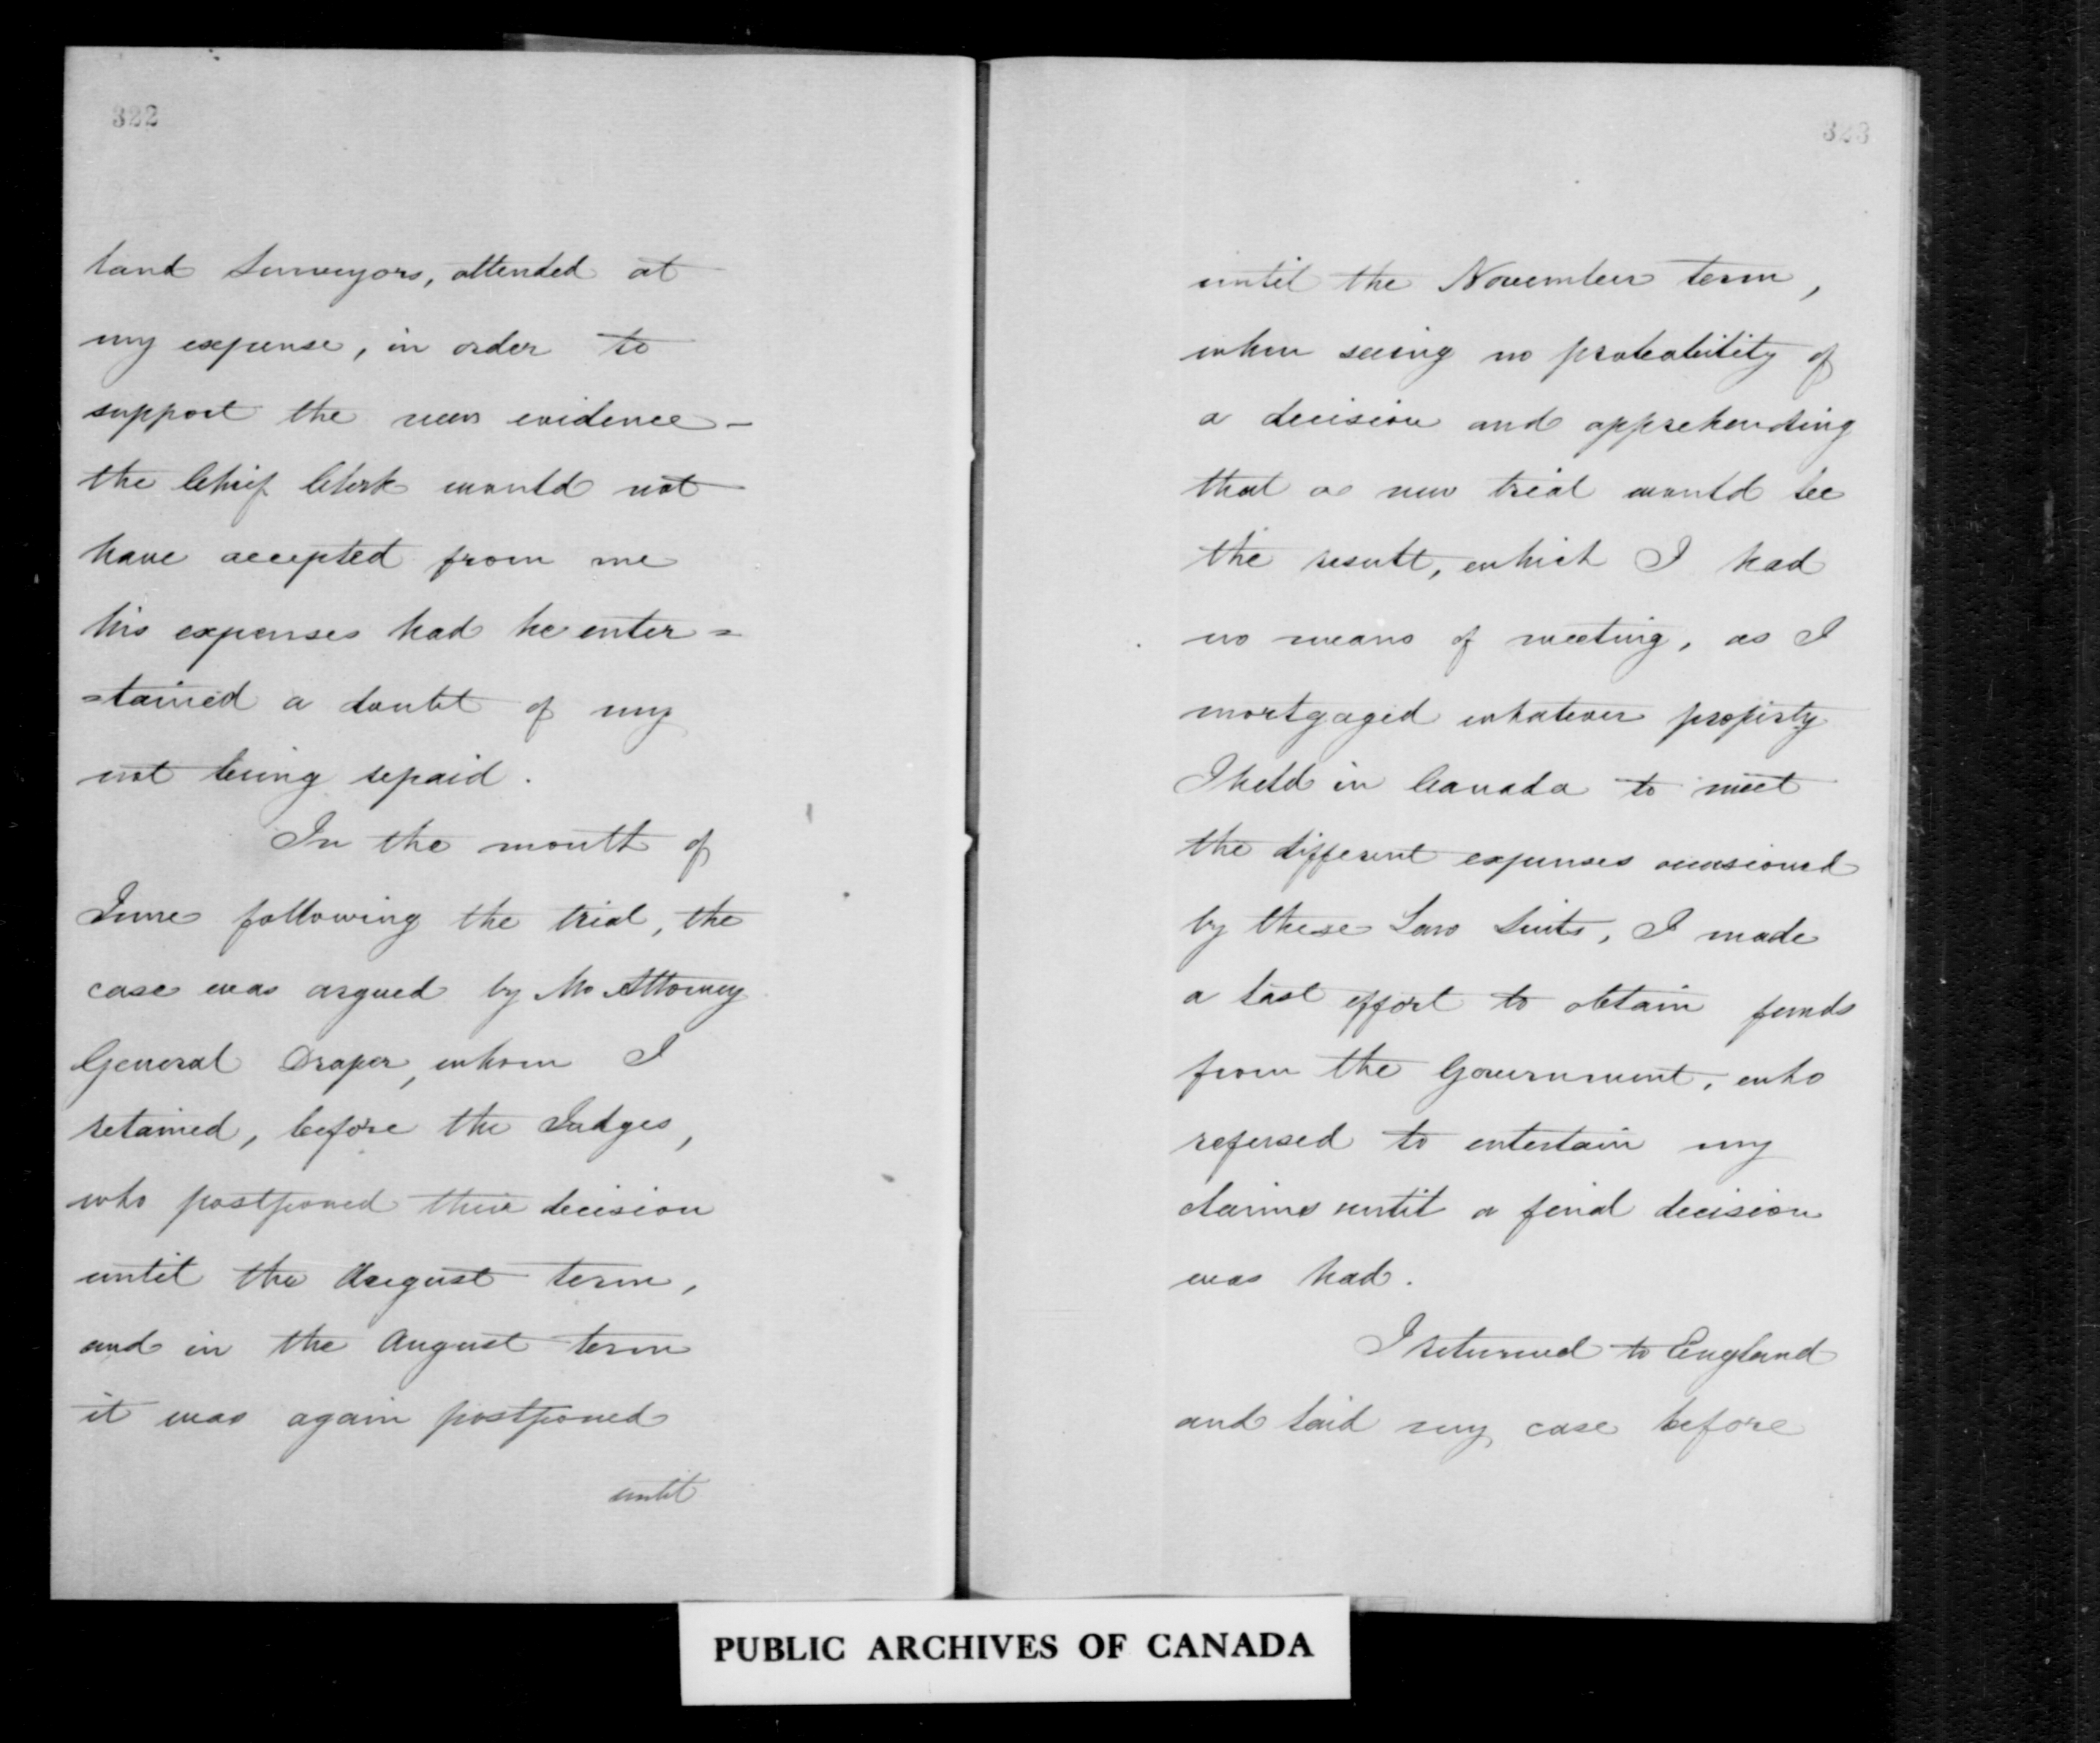 322
land Surveyors, attended at
my expense, in order to
support the new evidence -
the Chief Clerk would not
have accepted from me
his expenses had he enter =
=tained a doubt of my
not being repaid.
In the month of
June following the trial, the
case was argued by Mr Attorney
General Draper, whom I
retained, before the Judges,
who postponed their decision
until the August term,
and in the August term
it was again postponed
until
323
until the November term,
when seeing no probability of
a decision and apprehending
that a new trial would be
the result, which I had
no means of meeting, as I
mortgaged whatever property
I held in Canada to meet
the different expenses occasioned
by these Law Suits, I made
a last effort to obtain funds
from the Government, who
refused to entertain my
claims until a final decision
was had.
I returned to England
and laid my case before
PUBLIC ARCHIVES OF CANADA